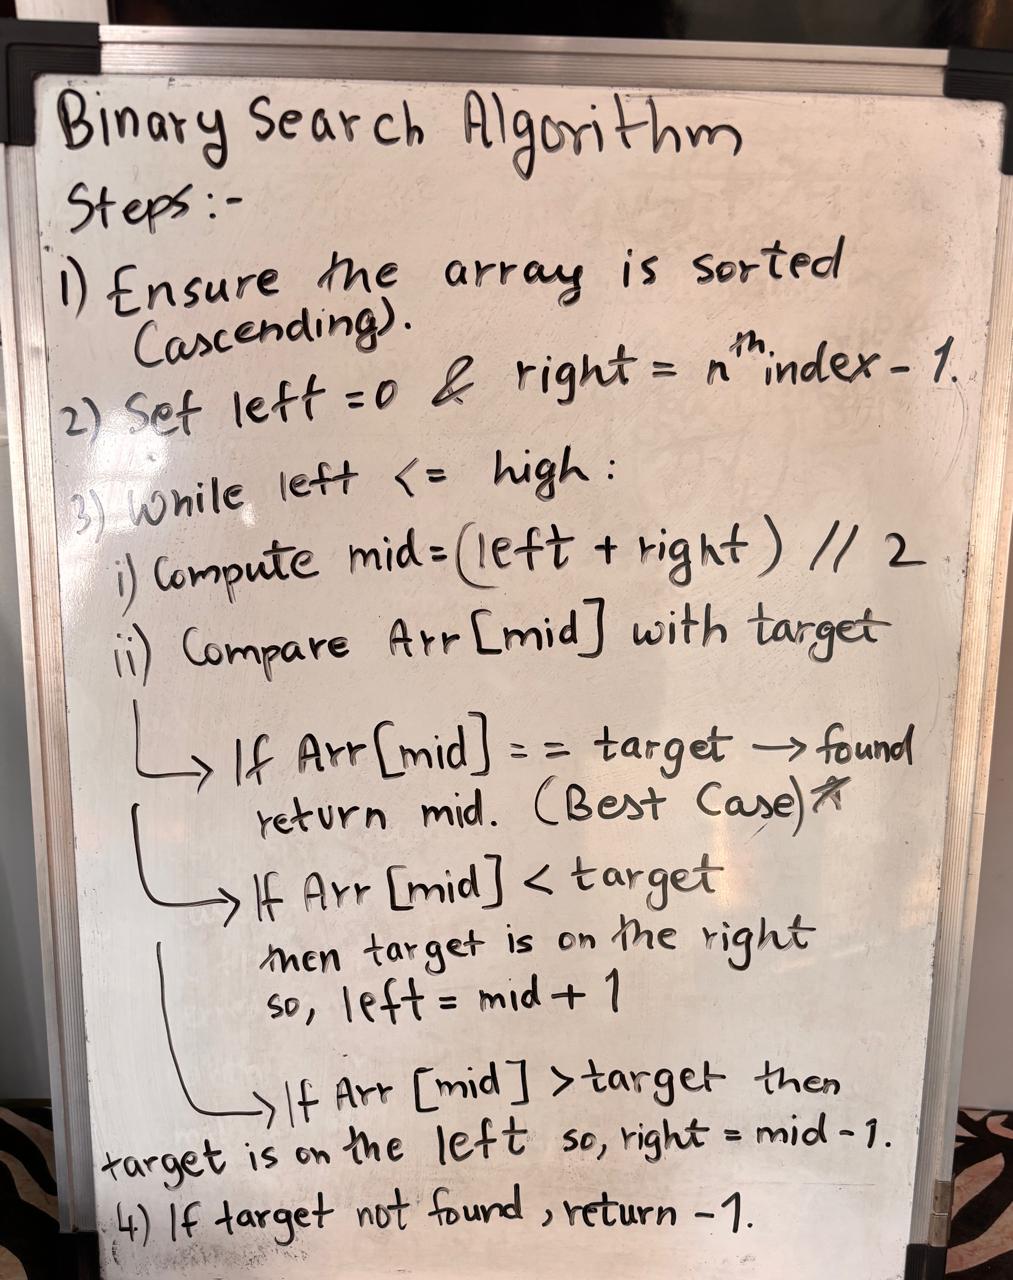 Binary Search Algorithm
Steps :-
1) Ensure the array is sorted
(ascending).
2) Set left = 0 & right = nth index - 1.
3) While left <= high :
i) Compute mid = (left + right) // 2
ii) Compare Arr [mid] with target
→ If Arr [mid] == target → found
return mid. (Best Case)*
→ If Arr [mid] < target
then target is on the right
so, left = mid + 1
→ If Arr [mid] > target then
target is on the left so, right = mid - 1.
4) If target not found, return -1.